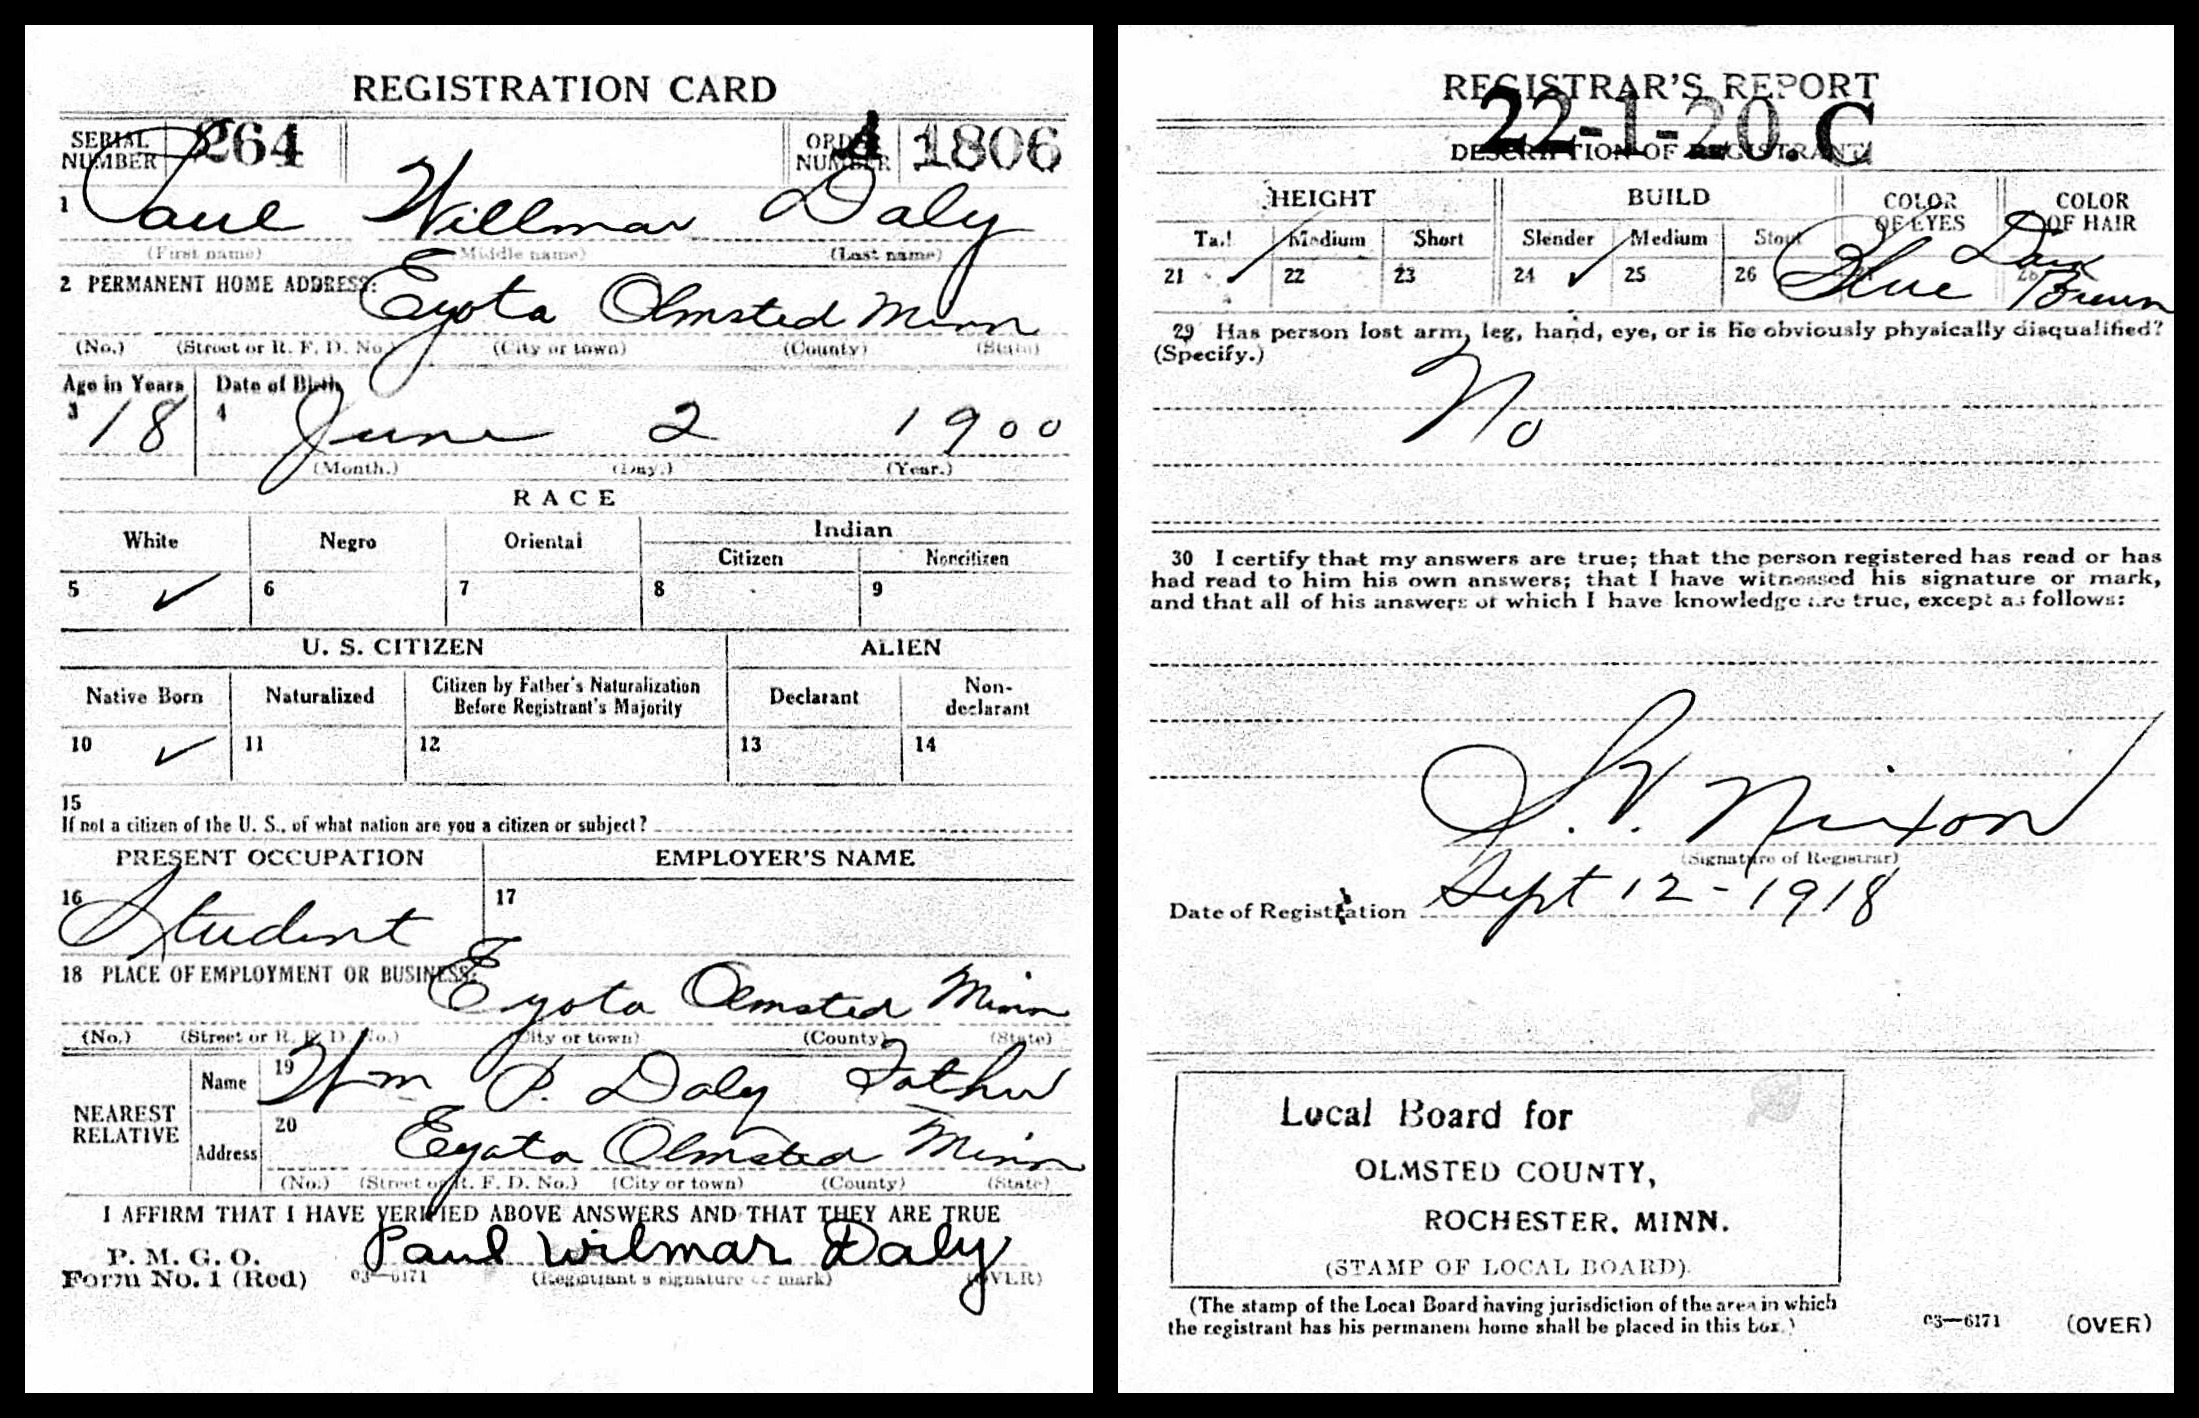 REGISTRATION CARD
SERIAL NUMBER 264 ORDER NUMBER A 1806
1 Paul Willmar Daly
(First name) (Middle name) (Last name)
2 PERMANENT HOME ADDRESS: Eyota Olmsted Minn
(No.) (Street or R. F. D. No.) (City or town) (County) (State)
Age in Years Date of Birth
3 18 4 June 2 1900
(Month.) (Day.) (Year.)
RACE
White Negro Oriental Indian
Citizen Noncitizen
5 ✓ 6 7 8 9
U. S. CITIZEN ALIEN
Native Born Naturalized Citizen by Father's Naturalization Before Registrant's Majority Declarant Non-declarant
10 ✓ 11 12 13 14
15
If not a citizen of the U. S., of what nation are you a citizen or subject?
PRESENT OCCUPATION EMPLOYER'S NAME
16 Student 17
18 PLACE OF EMPLOYMENT OR BUSINESS: Eyota Olmsted Minn
(No.) (Street or R. F. D. No.) (City or town) (County) (State)
NEAREST RELATIVE
Name 19 Wm P. Daly Father
Address 20 Eyota Olmsted Minn
(No.) (Street or R. F. D. No.) (City or town) (County) (State)
I AFFIRM THAT I HAVE VERIFIED ABOVE ANSWERS AND THAT THEY ARE TRUE
P. M. G. O.
Form No. 1 (Red) 03—6171 Paul Wilmar Daly
(Registrant's signature or mark) (OVER)
REGISTRAR'S REPORT
22-1-20. C
DESCRIPTION OF REGISTRANT
HEIGHT BUILD COLOR OF EYES COLOR OF HAIR
Tall Medium Short Slender Medium Stout
21 ✓ 22 23 24 ✓ 25 26 27 Blue 28 Dark Brown
29 Has person lost arm, leg, hand, eye, or is he obviously physically disqualified?
(Specify.)
No
30 I certify that my answers are true; that the person registered has read or has
had read to him his own answers; that I have witnessed his signature or mark,
and that all of his answers of which I have knowledge are true, except as follows:
S. V. Nixon
(Signature of Registrar)
Date of Registration Sept 12-1918
Local Board for
OLMSTED COUNTY,
ROCHESTER, MINN.
(STAMP OF LOCAL BOARD)
(The stamp of the Local Board having jurisdiction of the area in which
the registrant has his permanent home shall be placed in this box.)
03—6171 (OVER)